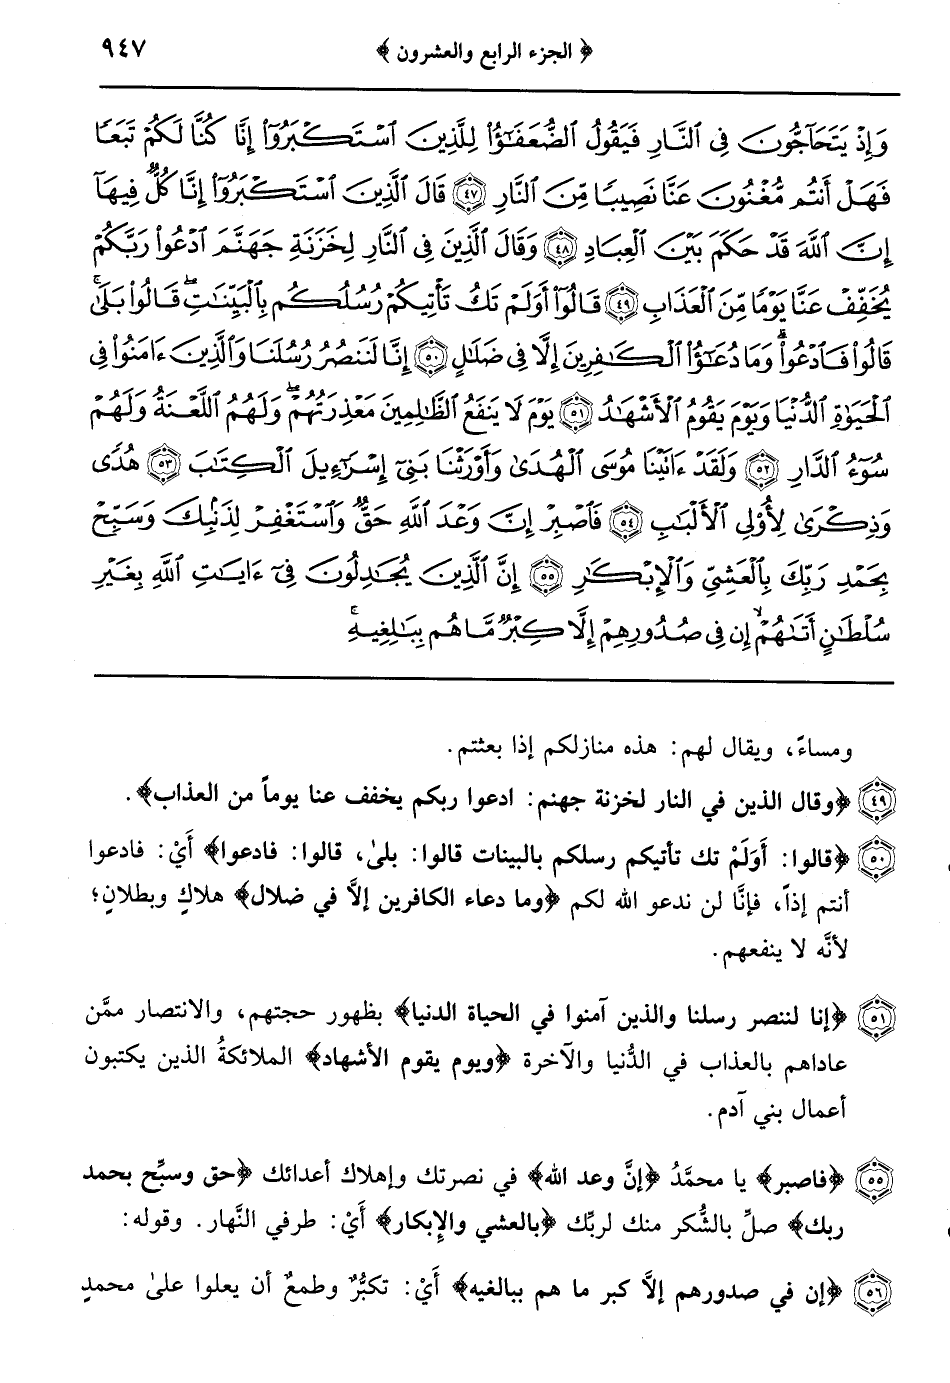 ﴿ الجزء الرابع والعشرون ﴾ ٩٤٧
وَإِذْ يَتَحَآجُّونَ فِى ٱلنَّارِ فَيَقُولُ ٱلضُّعَفَـٰٓؤُا۟ لِلَّذِينَ ٱسْتَكْبَرُوٓا۟ إِنَّا كُنَّا لَكُمْ تَبَعًا
فَهَلْ أَنتُم مُّغْنُونَ عَنَّا نَصِيبًا مِّنَ ٱلنَّارِ ٤٧ قَالَ ٱلَّذِينَ ٱسْتَكْبَرُوٓا۟ إِنَّا كُلٌّ فِيهَآ
إِنَّ ٱللَّهَ قَدْ حَكَمَ بَيْنَ ٱلْعِبَادِ ٤٨ وَقَالَ ٱلَّذِينَ فِى ٱلنَّارِ لِخَزَنَةِ جَهَنَّمَ ٱدْعُوا۟ رَبَّكُمْ
يُخَفِّفْ عَنَّا يَوْمًا مِّنَ ٱلْعَذَابِ ٤٩ قَالُوٓا۟ أَوَلَمْ تَكُ تَأْتِيكُمْ رُسُلُكُم بِٱلْبَيِّنَـٰتِ ۖ قَالُوا۟ بَلَىٰ ۚ
قَالُوا۟ فَٱدْعُوا۟ ۗ وَمَا دُعَـٰٓؤُا۟ ٱلْكَـٰفِرِينَ إِلَّا فِى ضَلَـٰلٍ ٥٠ إِنَّا لَنَنصُرُ رُسُلَنَا وَٱلَّذِينَ ءَامَنُوا۟ فِى
ٱلْحَيَوٰةِ ٱلدُّنْيَا وَيَوْمَ يَقُومُ ٱلْأَشْهَـٰدُ ٥١ يَوْمَ لَا يَنفَعُ ٱلظَّـٰلِمِينَ مَعْذِرَتُهُمْ ۖ وَلَهُمُ ٱللَّعْنَةُ وَلَهُمْ
سُوٓءُ ٱلدَّارِ ٥٢ وَلَقَدْ ءَاتَيْنَا مُوسَى ٱلْهُدَىٰ وَأَوْرَثْنَا بَنِىٓ إِسْرَٰٓءِيلَ ٱلْكِتَـٰبَ ٥٣ هُدًى
وَذِكْرَىٰ لِأُو۟لِى ٱلْأَلْبَـٰبِ ٥٤ فَٱصْبِرْ إِنَّ وَعْدَ ٱللَّهِ حَقٌّ وَٱسْتَغْفِرْ لِذَنۢبِكَ وَسَبِّحْ
بِحَمْدِ رَبِّكَ بِٱلْعَشِىِّ وَٱلْإِبْكَـٰرِ ٥٥ إِنَّ ٱلَّذِينَ يُجَـٰدِلُونَ فِىٓ ءَايَـٰتِ ٱللَّهِ بِغَيْرِ
سُلْطَـٰنٍ أَتَىٰهُمْ ۙ إِن فِى صُدُورِهِمْ إِلَّا كِبْرٌ مَّا هُم بِبَـٰلِغِيهِ ۚ
ومساءً، ويقال لهم: هذه منازلكم إذا بعثتم.
٤٩ ﴿وقال الذين في النار لخزنة جهنم: ادعوا ربكم يخفف عنا يوماً من العذاب﴾.
٥٠ ﴿قالوا: أَوَلَمْ تك تأتيكم رسلكم بالبينات قالوا: بلىٰ، قالوا: فادعوا﴾ أَيْ: فادعوا
أنتم إذاً، فإنَّا لن ندعو الله لكم ﴿وما دعاء الكافرين إلاَّ في ضلال﴾ هلاكٍ وبطلانٍ؛
لأنَّه لا ينفعهم.
٥١ ﴿إنا لننصر رسلنا والذين آمنوا في الحياة الدنيا﴾ بظهور حجتهم، والانتصار ممَّن
عاداهم بالعذاب في الدُّنيا والآخرة ﴿ويوم يقوم الأشهاد﴾ الملائكةُ الذين يكتبون
أعمال بني آدم.
٥٥ ﴿فاصبر﴾ يا محمَّدُ ﴿إنَّ وعد الله﴾ في نصرتك وإهلاك أعدائك ﴿حق وسبِّح بحمد
ربك﴾ صلِّ بالشُّكر منك لربِّك ﴿بالعشي والإبكار﴾ أَيْ: طرفي النَّهار. وقوله:
٥٦ ﴿إن في صدورهم إلاَّ كبر ما هم ببالغيه﴾ أَيْ: تكبُّرٌ وطمعٌ أن يعلوا علىٰ محمدٍ